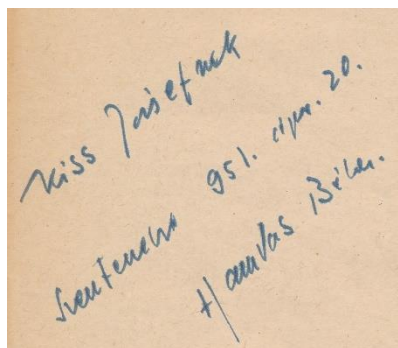 Kiss Józsefnek
Szentendre 951. ápr. 20.
Hamvas Béla.